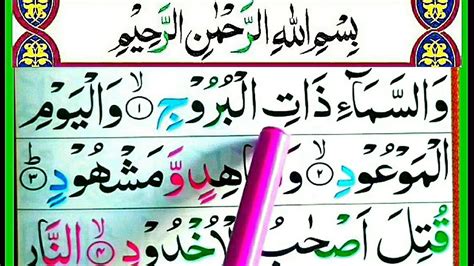 بِسْمِ اللهِ الرَّحْمٰنِ الرَّحِيْمِ
وَالسَّمَآءِ ذَاتِ الْبُرُوْجِ ۙ﴿۱﴾ وَالْيَوْمِ
الْمَوْعُوْدِ ۙ﴿۲﴾ وَّمَشْهُوْدٍ ؕ﴿۳﴾
قُتِلَ اَصْحٰبُ الْاُخْدُوْدِ ۙ﴿۴﴾ النَّارِ